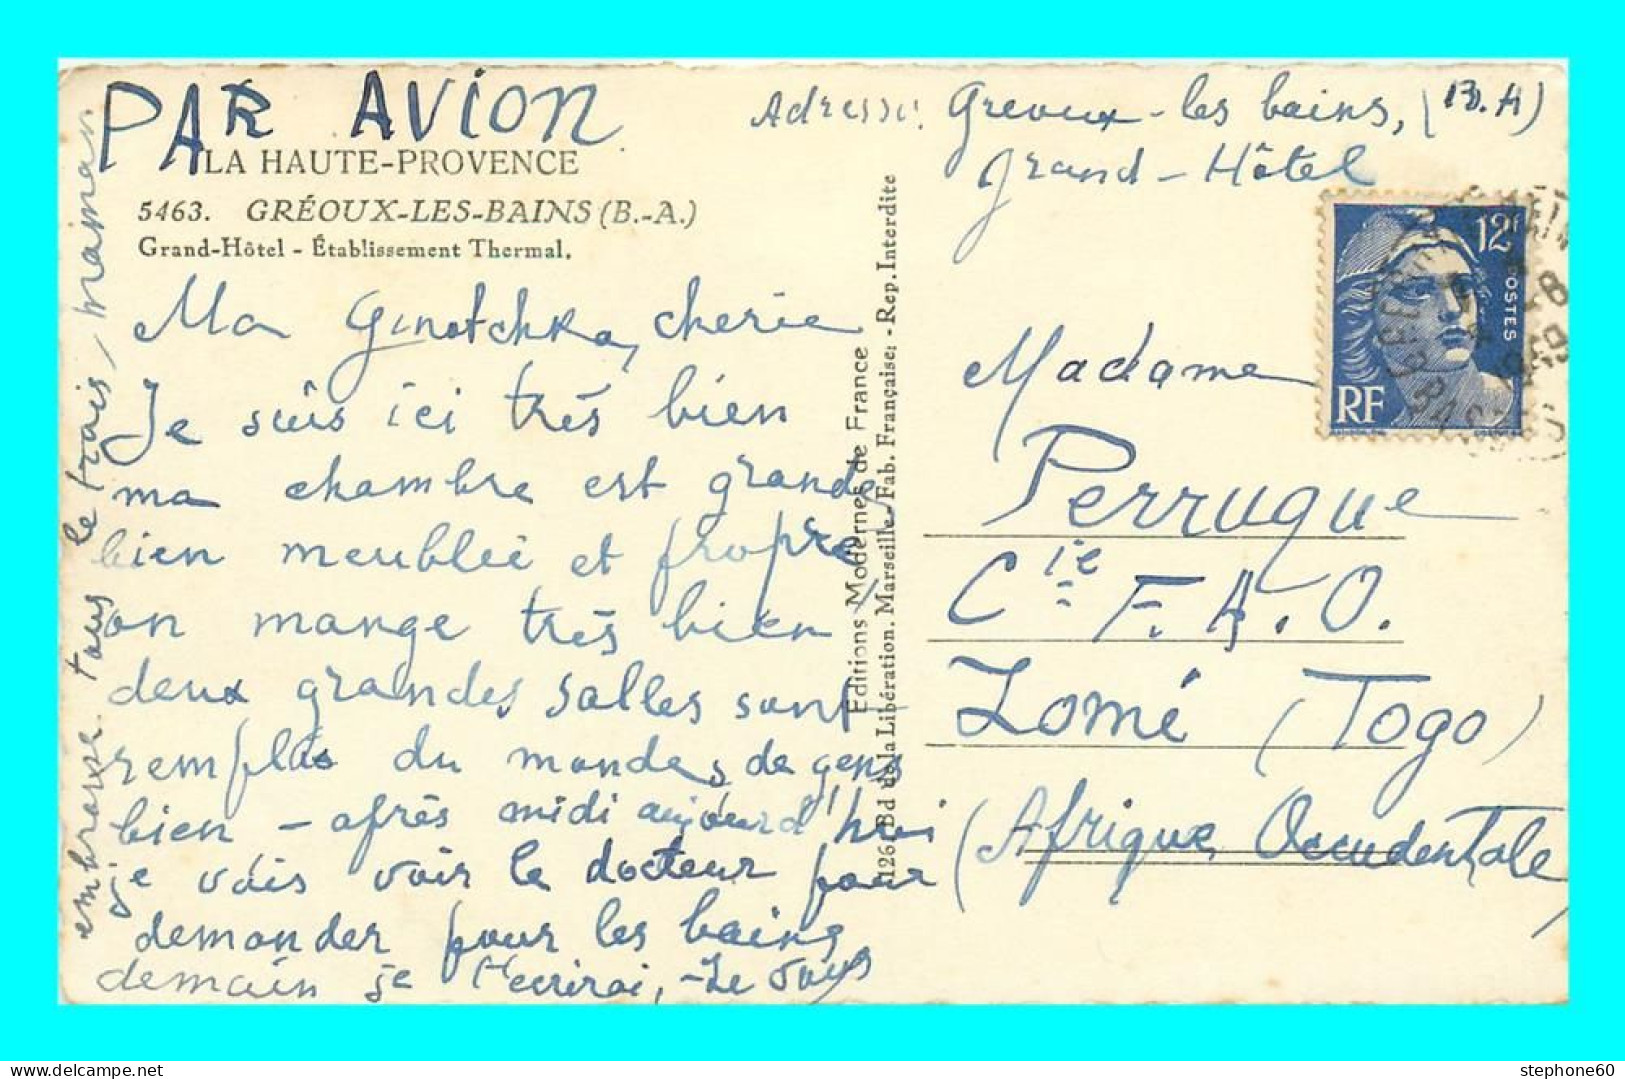 PAR AVION
LA HAUTE-PROVENCE
5463. GRÉOUX-LES-BAINS (B.-A.)
Grand-Hôtel - Établissement Thermal.
Ma Ginotchka, cherie
Je suis ici très bien
ma chambre est grande,
bien meublée et propre
on mange très bien
deux grandes salles sont
remplis du monde, de gens
bien - après midi aujourd'hui
je vais voir le docteur pour
demander pour les bains
demain je t'ecrirai, - Je vous
embrasse tous le trois, maman
Editions Modernes de France
1126, Bd de la Libération. Marseille - Fab. Française: - Rep. Interdite
Adresse: Greoux-les bains, (B.A)
Grand-Hôtel
12F
POSTES
RF
Madame
Perruque
Cie F.A.O.
Lomé (Togo)
(Afrique Occidentale
stephone60